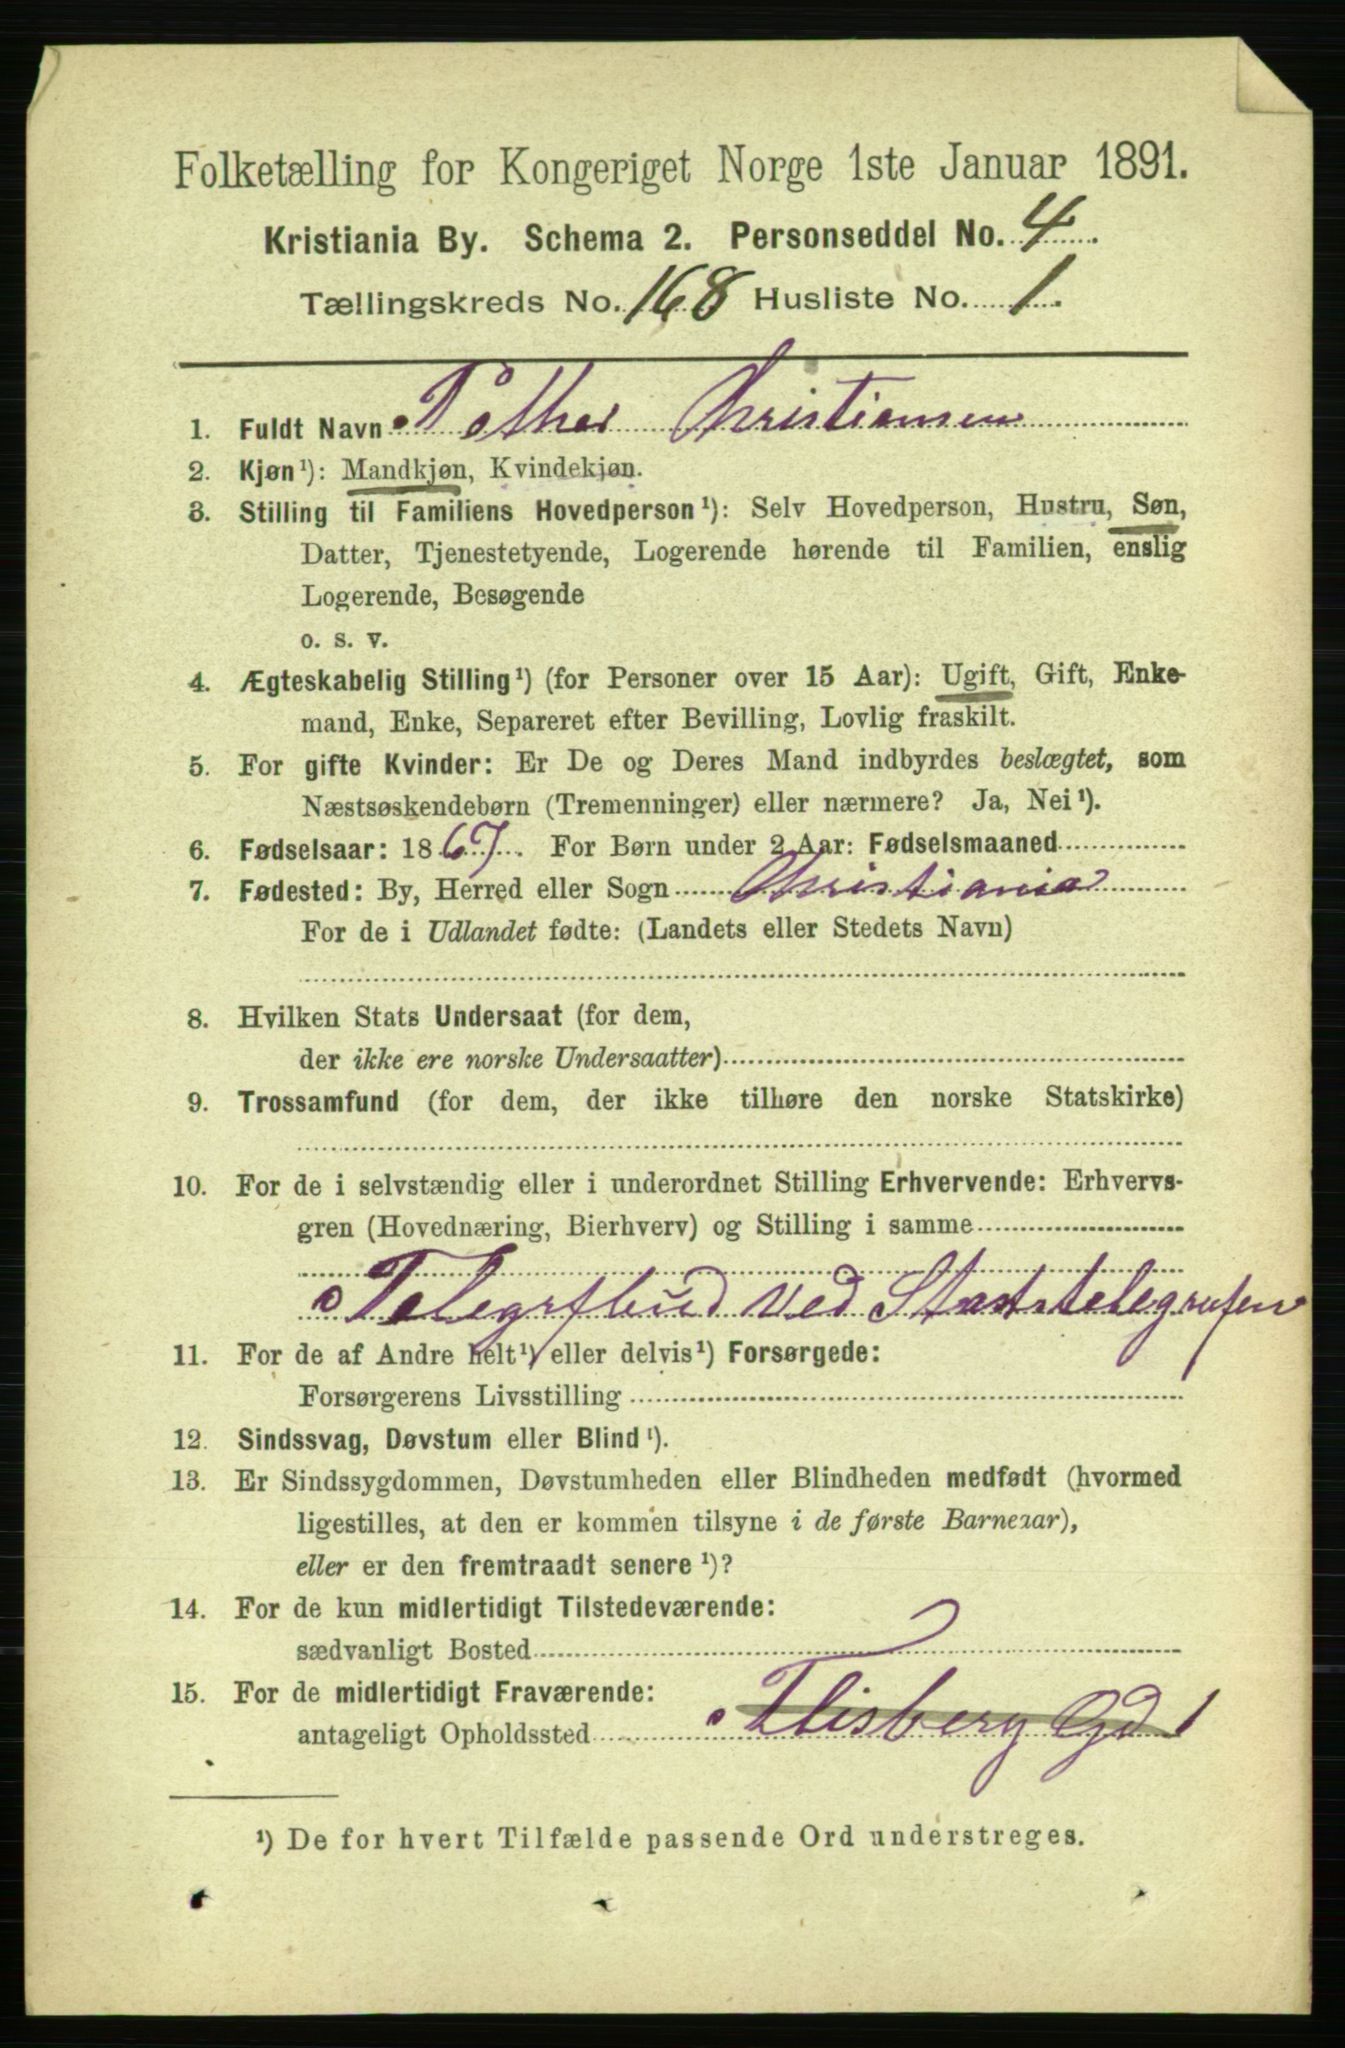 Folketælling for Kongeriget Norge 1ste Januar 1891.
Kristiania By. Schema 2. Personseddel No. 4
Tællingskreds No. 168 Husliste No. 1.
1. Fuldt Navn Christiansen
2. Kjøn¹): Mandkjøn, Kvindekjøn.
3. Stilling til Familiens Hovedperson¹): Selv Hovedperson, Hustru, Søn,
Datter, Tjenestetyende, Logerende hørende til Familien, enslig
Logerende, Besøgende
o. s. v.
4. Ægteskabelig Stilling¹) (for Personer over 15 Aar): Ugift, Gift, Enke-
mand, Enke, Separeret efter Bevilling, Lovlig fraskilt.
5. For gifte Kvinder: Er De og Deres Mand indbyrdes beslægtet, som
Næstsøskendebørn (Tremenninger) eller nærmere? Ja, Nei¹).
6. Fødselsaar: 1867. For Børn under 2 Aar: Fødselsmaaned
7. Fødested: By, Herred eller Sogn Christiania
For de i Udlandet fødte: (Landets eller Stedets Navn)
8. Hvilken Stats Undersaat (for dem,
der ikke ere norske Undersaatter)
9. Trossamfund (for dem, der ikke tilhøre den norske Statskirke)
10. For de i selvstændig eller i underordnet Stilling Erhvervende: Erhvervs-
gren (Hovednæring, Bierhverv) og Stilling i samme
Telegrfbud ved Statstelegrafen
11. For de af Andre helt¹) eller delvis¹) Forsørgede:
Forsørgerens Livsstilling
12. Sindssvag, Døvstum eller Blind¹).
13. Er Sindssygdommen, Døvstumheden eller Blindheden medfødt (hvormed
ligestilles, at den er kommen tilsyne i de første Barneaar),
eller er den fremtraadt senere¹)?
14. For de kun midlertidigt Tilstedeværende:
sædvanligt Bosted
15. For de midlertidigt Fraværende:
antageligt Opholdssted Flisberg Gd 1
¹) De for hvert Tilfælde passende Ord understreges.